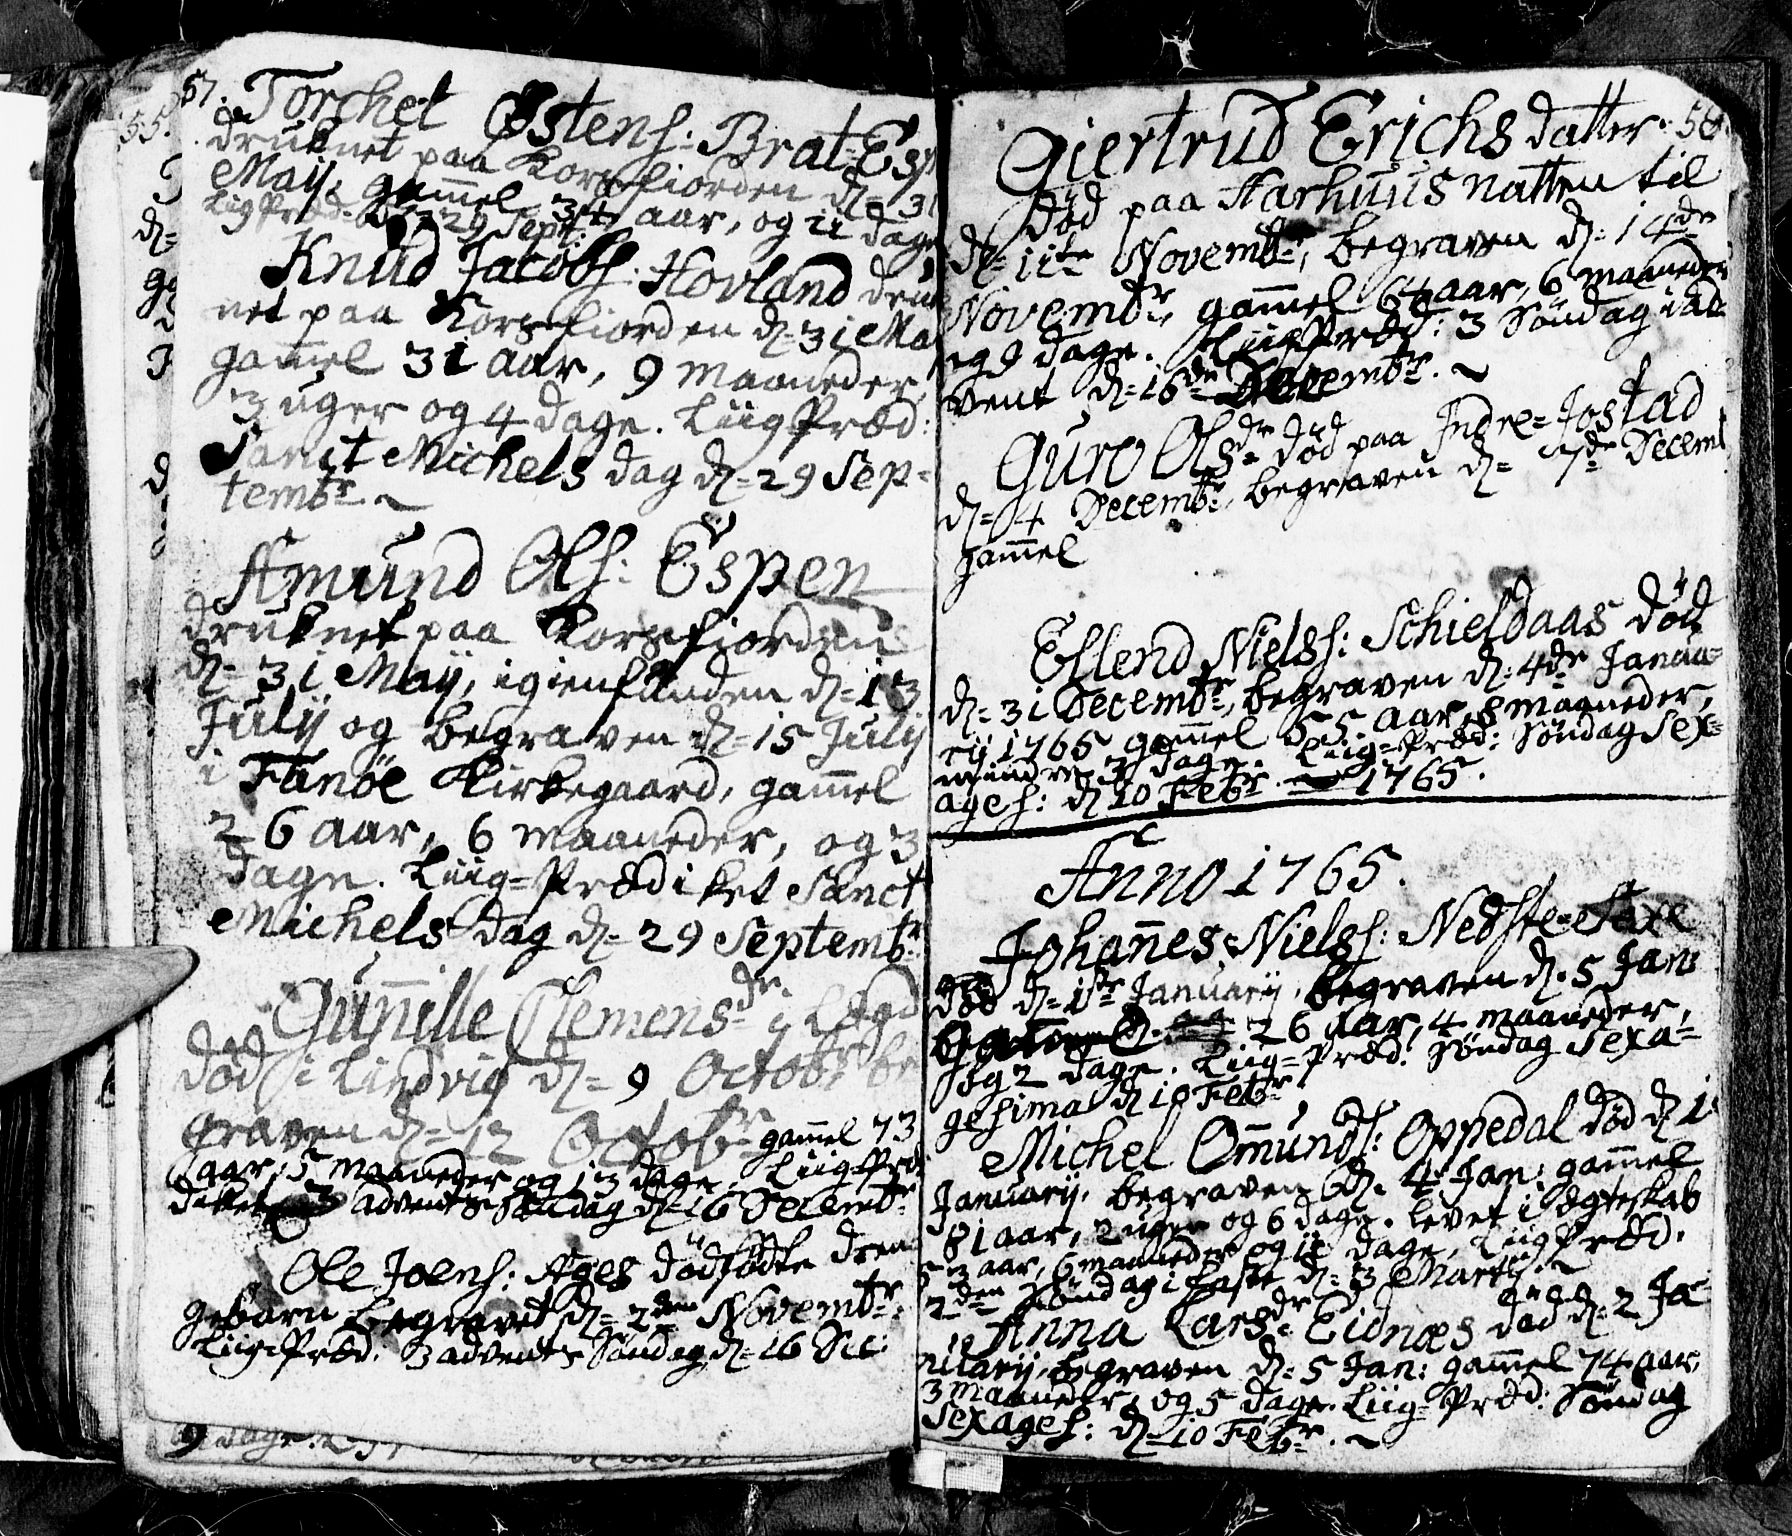 57.
Torchel Østens: Brat=Esp
druknet paa Korsfiorden d= 31
Maij, gam̄el 34 aar, og 11 dage
Liig Præd: d= 29 Sept:
Knud Jacobs: Hovland druk
net paa Korsfiorden d= 31 Ma
gam̄el 31 aar, 9 maaneder,
3 uger og 4 dage. Liig Præd:
Sanct Michels dag d= 29 Sep=
tembr.
Amund Ols: Espen
druknet paa Korsfiorden
d= 31 Maij, igienfunden d= 13
Julij og begraven d= 15 Julij
i Fanöe Kirkegaard, gam̄el
26 aar, 6 maaneder, og 3
dage. Liig=Prædiket Sanct
Michels dag d= 29 Septembr:
Gun̄ille Clemens dr.
död i Lindvig d= 9 Octobr be
graven d= 12 Octobr gam̄el 73
aar, 5 maaneder og 13 dage, Liig=Præ
diket 3 advents Söndag d= 16 Decembr:
Ole Joens: Ages dödfödte dren
gebarn begravet d= 2den Novembr:
Liig=Præd: 3 advents Söndag d= 16 Dec:
58.
Giertrud Erichs datter
död paa Harhuus natten til
d= 11te Novembr, begraven d= 14de
Novembr, gam̄el 64 aar, 6 maaneder
og 9 dage. Liig Præd: 3 Söndag i ad=
vent d= 16de Decembr.
Guro Ols dr död paa Indre=Jostad
d= 4 Decembr, begraven d= 7de Decemb
gam̄el
Ellend Niels: Schieldaas död
d= 31 Decembr, begraven d= 4de Janua=
rij 1765 gam̄el 55 aar, 8 maaneder,
mindre 3 dage. Liig=Præd: Söndag Sex=
ages: d 10 Febr. 1765.
Anno 1765.
Johan̄es Niels: Nedste=Saxe
död d= 1te Januarij, begraven d= 5 Jan
26 aar, 4 maaneder,
og 2 dage. Liig=Præd: Söndag Sexa=
gesima d 10 Febr
Michel Om̄unds: Oppedal död d 1
Januarij, begraven d= 4 Jan: gam̄el
81 aar, 2 uger og 6 dage. levet i Ægteskab
aar, 6 maaneder og 11 dage, Liig Præd:
2den Söndag i Faste d= 3 Martij.
Anna Lars dr Eidnæs död d= 2 Ja=
nuarij, begraven d= 5 Jan: gam̄el 74 aar,
3 maaneder, og 5 dage. Liig=Præd: Söndag
Sexages: d= 10 Febr.